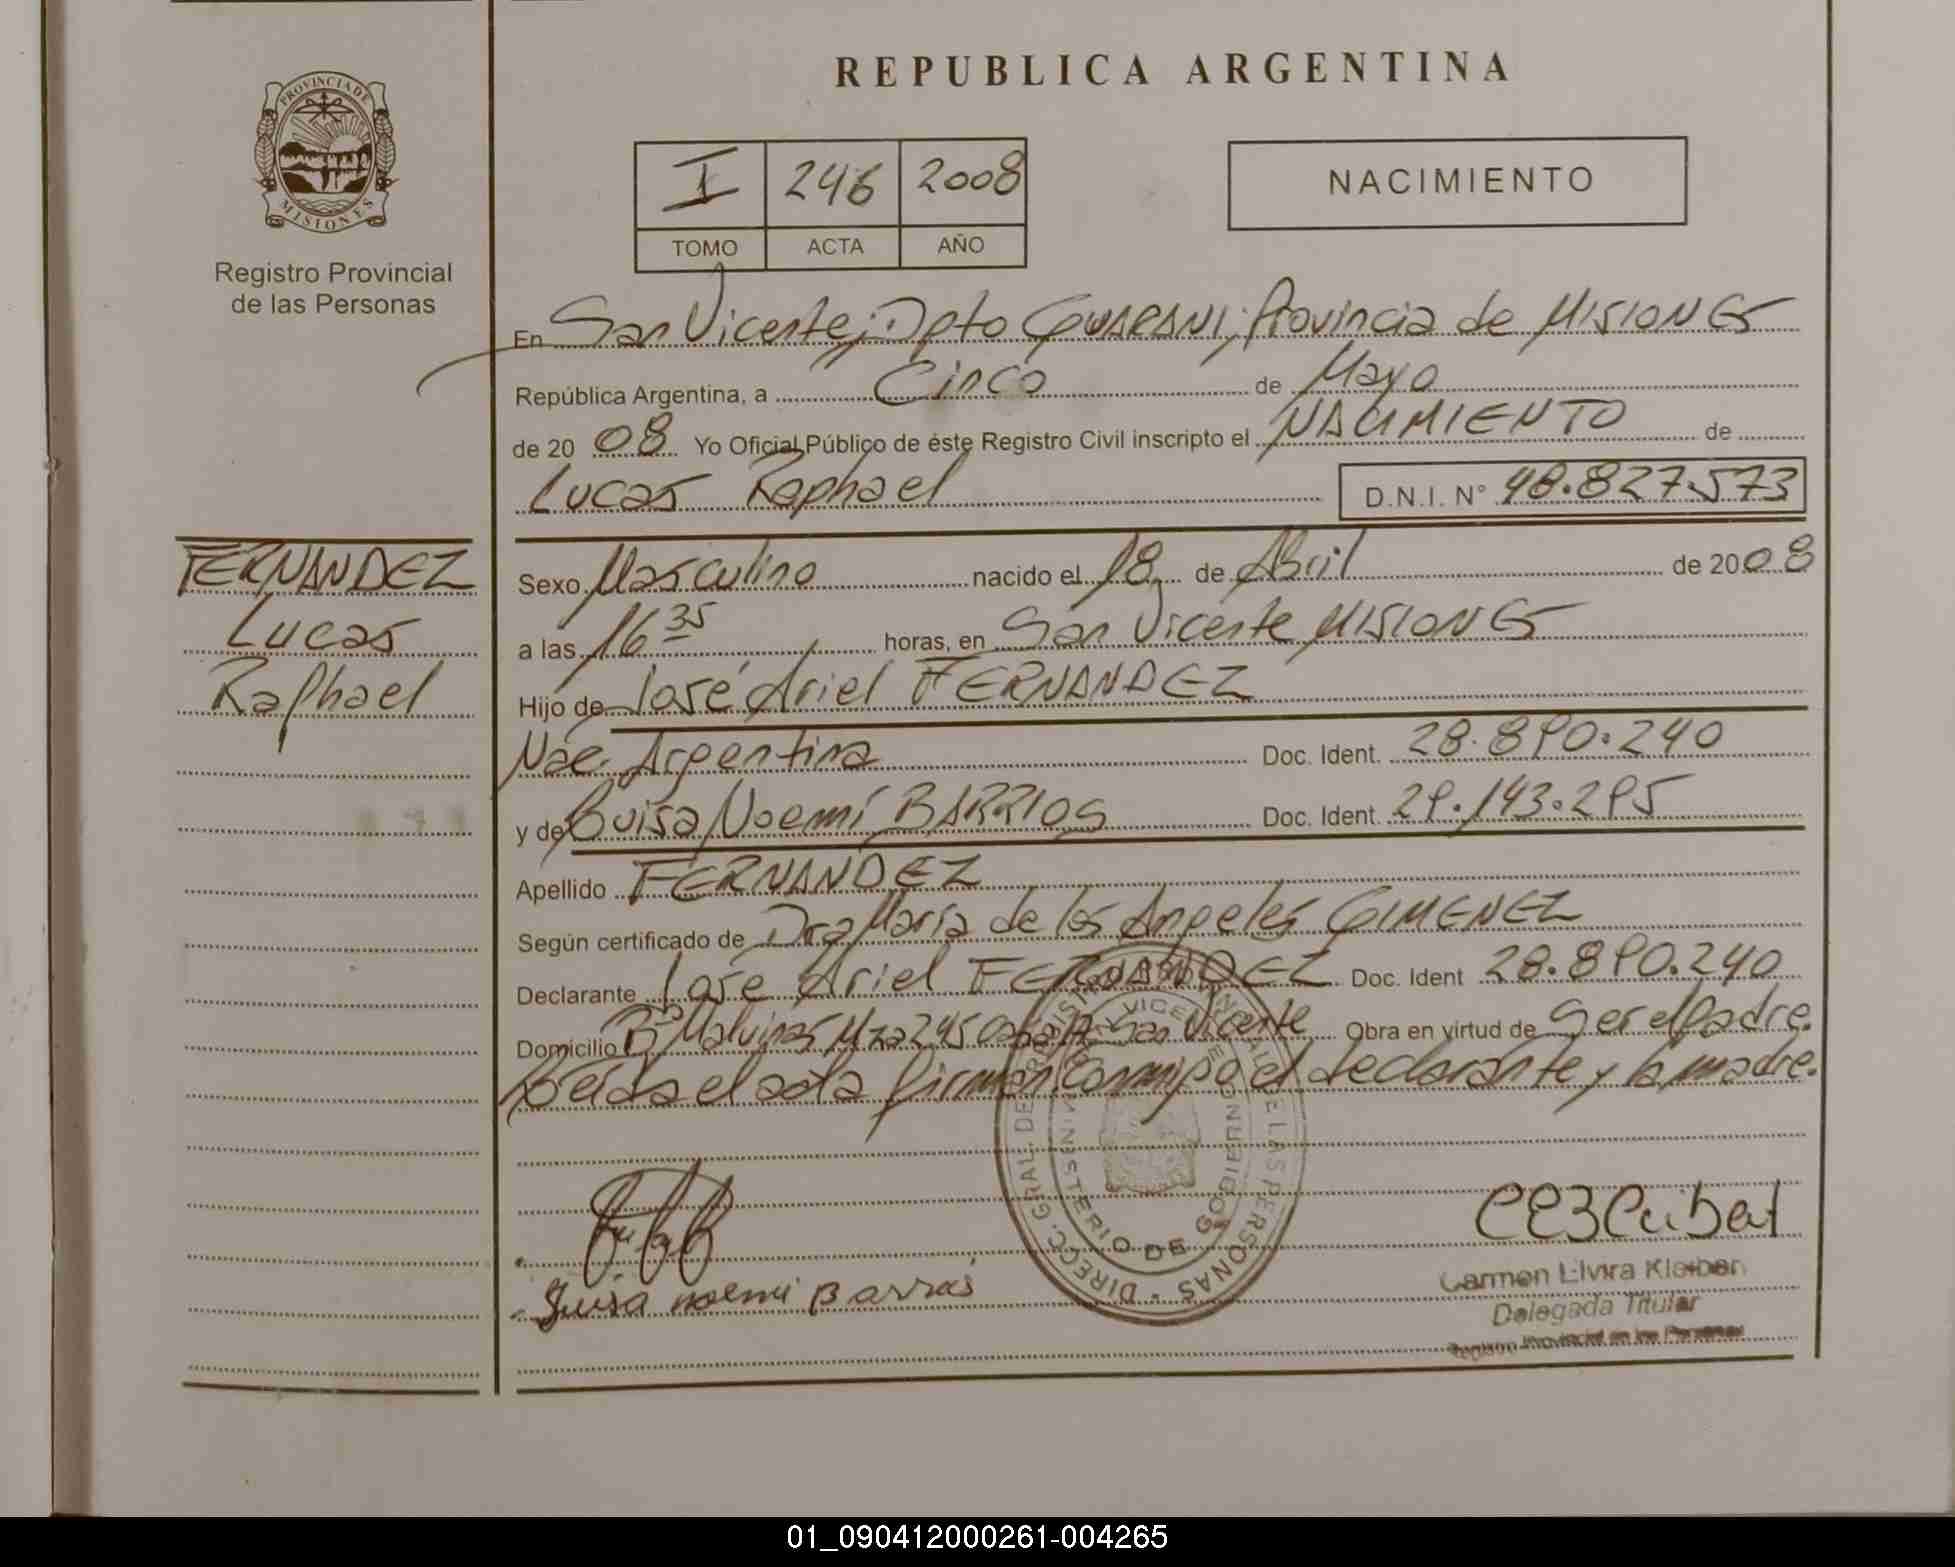 REPUBLICA ARGENTINA
PROVINCIA DE
MISIONES
Registro Provincial
de las Personas
I 246 2008
TOMO ACTA AÑO
NACIMIENTO
En San Vicente, Dpto GUARANI, Provincia de MISIONES
República Argentina, a Cinco de Mayo
de 20 08 Yo Oficial Público de éste Registro Civil inscripto el NACIMIENTO de
Lucas Raphael D.N.I. N° 48.827.573
FERNANDEZ
Lucas
Raphael
Sexo Masculino nacido el 18 de Abril de 2008
a las 16 35 horas, en San Vicente MISIONES
Hijo de José Ariel FERNANDEZ
Nac. Argentina Doc. Ident. 28.890.240
y de Luisa Noemí BARRIOS Doc. Ident. 29.143.295
Apellido FERNANDEZ
Según certificado de Dra María de los Angeles GIMENEZ
Declarante José Ariel FERNANDEZ Doc. Ident 28.890.240
Domicilio B° Malvinas Mza 245 San Vicente Obra en virtud de Ser el Padre.
Leída el acta firman conmigo el declarante y la madre.
DIRECC. GRAL. DE LAS PERSONAS
MINISTERIO DE GOBIERNO
Luisa noemi Barrios
Carmen Elvira Kleiber
Delegada Titular
Registro Provincial de las Personas
01_090412000261-004265